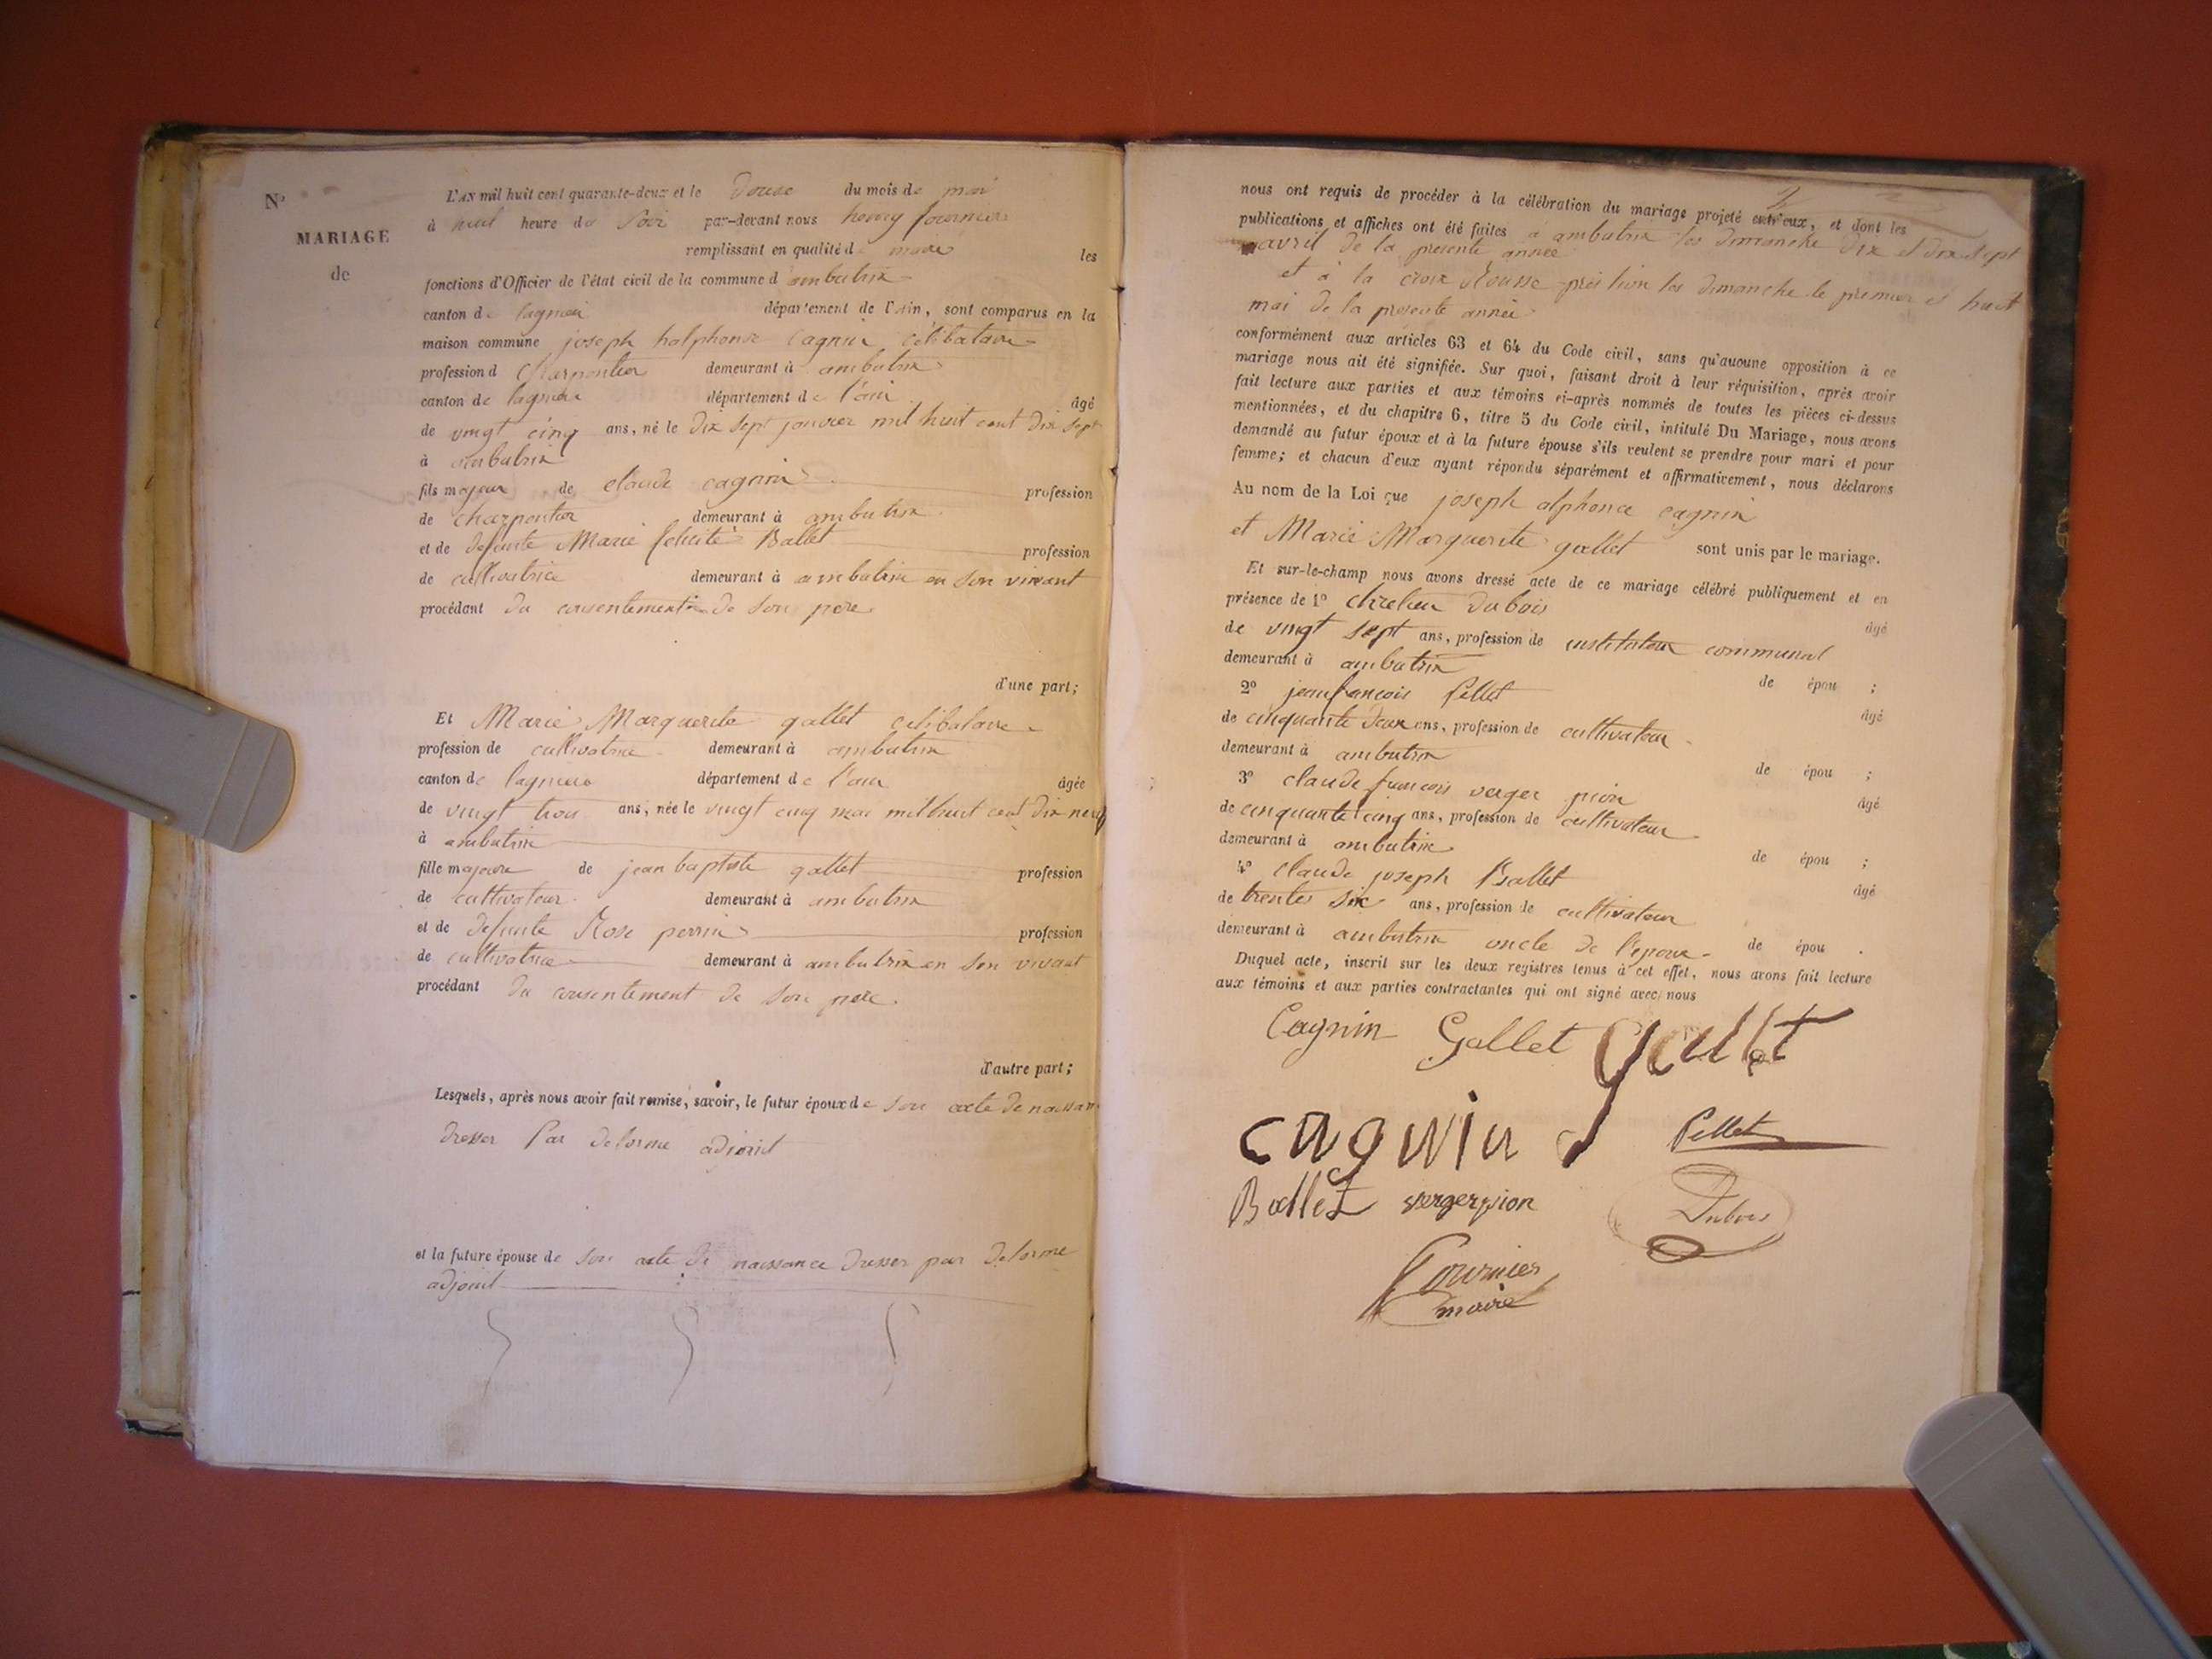 N°
MARIAGE
de
L'AN mil huit cent quarante-deux et le douze du mois de mai
à huit heure du soir par-devant nous henry fournier
remplissant en qualité de maire les
fonctions d'Officier de l'état civil de la commune d ambutrix
canton de lagnieu département de l'Ain, sont comparus en la
maison commune joseph halphonse Cagnin célibataire
profession d Charpentier demeurant à ambutrix
canton de lagnieu département de l'ain âgé
de vingt cinq ans, né le dix sept janvier mil huit cent dix sept
à ambutrix
fils majeur de claude cagnin profession
de charpentier demeurant à ambutrix
et de defunte Marie félicité Ballet profession
de cultivatrice demeurant à ambutrix en son vivant
procédant du consentement de son père
d'une part;
Et Marie Marguerite gallet célibataire
profession de cultivatrice demeurant à ambutrix
canton de lagnieu département de l'ain âgée
de vingt trois ans, née le vingt cinq mai mil huit cent dix neuf
à ambutrix
fille majeure de jean baptiste gallet profession
de cultivateur demeurant à ambutrix
et de defunte Rose perrin profession
de cultivatrice demeurant à ambutrix en son vivant
procédant du consentement de son père
d'autre part;
Lesquels, après nous avoir fait remise, savoir, le futur époux de son acte de naissan
dresser par delorme adjoint
et la future épouse de son acte de naissance dresser par delorme
adjoint
nous ont requis de procéder à la célébration du mariage projeté entr'eux, et dont les
publications et affiches ont été faites a ambutrix les dimanche dix et dix sept
avril de la presente année
et à la croix Rousse près lion les dimanche le premier et huit
mai de la presente année
conformément aux articles 63 et 64 du Code civil, sans qu'aucune opposition à ce
mariage nous ait été signifiée. Sur quoi, faisant droit à leur réquisition, après avoir
fait lecture aux parties et aux témoins ci-après nommés de toutes les pièces ci-dessus
mentionnées, et du chapitre 6, titre 5 du Code civil, intitulé Du Mariage, nous avons
demandé au futur époux et à la future épouse s'ils veulent se prendre pour mari et pour
femme; et chacun d'eux ayant répondu séparément et affirmativement, nous déclarons
Au nom de la Loi que joseph alphonce cagnin
et Marie Marguerite gallet sont unis par le mariage.
Et sur-le-champ nous avons dressé acte de ce mariage célébré publiquement et en
présence de 1° dubois âgé
de vingt sept ans, profession de instituteur communal
demeurant à ambutrix de épou ;
2° jean françois Pellet âgé
de cinquante deux ans, profession de cultivateur
demeurant à ambutrix de épou ;
3° claude françois verger pion âgé
de cinquante cinq ans, profession de cultivateur
demeurant à ambutrix de épou ;
4° claude joseph Ballet âgé
de trente six ans, profession de cultivateur
demeurant à ambutrix oncle de l'epoux de épou .
Duquel acte, inscrit sur les deux registres tenus à cet effet, nous avons fait lecture
aux témoins et aux parties contractantes qui ont signé avec nous
Cagnin Gallet gallet
cagnin Pellet
Ballet vergerpion Dubois
Fournier
maire